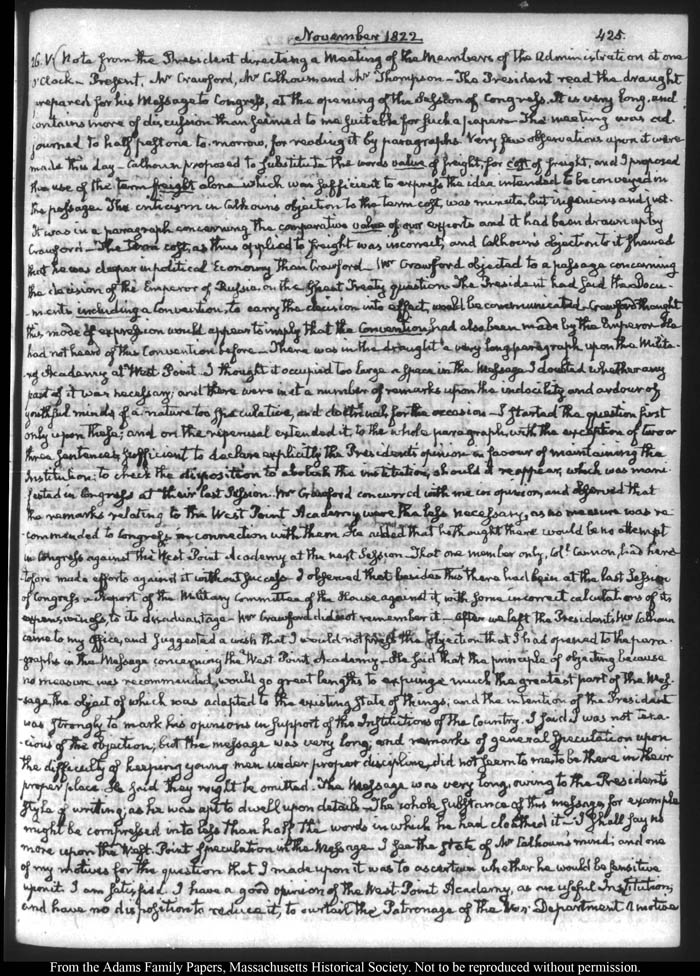 November 1822
425.
26. VI. Note from the President directing a Meeting of the Members of the Administration at one
o'Clock — Present, Mr Crawford, Mr Calhoun and Mr Thompson — The President read the draught
prepared for his Message to Congress, at the opening of the Session of Congress. It is very long, and
contains more of discussion than seemed to me suitable for such a paper — The meeting was ad-
journed to half past one to-morrow, for reading it by paragraphs. Very few observations upon it were
made this day — Calhoun proposed to substitute the words value of freight, for cost of freight, and I proposed
the use of the term freight alone which was sufficient to express the idea intended to be conveyed in
the passage. The criticism in Calhoun's objection to the term cost, was minute, but ingenious and just.
It was in a paragraph concerning the comparative value of our exports and it had been drawn up by
Crawford — The term cost, as thus applied to freight was incorrect, and Calhoun's objection to it shewed
that he was deeper in political Economy than Crawford — Mr Crawford objected to a passage concerning
the decision of the Emperor of Russia, on the Ghent Treaty question. The President had said the Docu-
ments including a Convention, to carry the decision into effect, would be communicated — Crawford thought
this mode of expression would appear to imply that the Convention, had also been made by the Emperor. He
had not heard of this Convention before — There was in the draught a very long paragraph upon the Milita-
ry Academy at West Point. I thought it occupied too large a space in the Message. I doubted whether any
part of it was necessary; and there were in it a number of remarks upon the indocility and ardour of
youthful minds of a nature too speculative, and doctrinal, for the occasion — I started the question first
only upon these; and on the reperusal extended it, to the whole paragraph, with the exception of two or
three sentences, sufficient to declare explicitly the President's opinion in favour of maintaining the
Institution: to check the disposition to abolish the institution, should it reappear, which was mani-
fested in Congress at their last Session. Mr Crawford concurred with me in opinion, and observed that
the remarks relating to the West Point Academy were the less necessary, as no measure was re-
commended to Congress in connection with them. He added that he thought there would be no attempt
in Congress against the West Point Academy at the next Session — That one member only, Coll. Cannon, had here-
tofore made efforts against it without success — I observed that besides this there had been at the last Session
of Congress a Report of the Military Committee of the House against it, with some incorrect calculations of its
expensiveness, to its disadvantage — Mr Crawford did not remember it — After we left the President's, Mr Calhoun
came to my Office, and suggested a wish that I would not press the objection that I had opened to the para-
graphs in the Message concerning the West Point Academy — He said that the principle of objecting because
no measure was recommended, would go great lengths to expunge much the greatest part of the Mes-
sage, the object of which was adapted to the existing state of things; and the intention of the President
was strongly to mark his opinions in support of the Institutions of the Country. I said I was not tena-
cious of the objection; but the message was very long, and remarks of general speculation upon
the difficulty of keeping young men under proper discipline, did not seem to me to be there in their
proper place. He said they might be omitted. The Message was very long, owing to the President's
style of writing; as he was apt to dwell upon details — The whole substance of this message, for example
might be compressed into less than half the words in which he had clothed it — I shall say no
more upon the West-Point speculation in the Message. I see the state of Mr Calhoun's mind; and one
of my motives for the question that I made upon it was to ascertain whether he would be sensitive
upon it. I am satisfied. I have a good opinion of the West Point Academy, as one useful Institution;
and have no disposition to reduce it, to curtail the Patronage of the War Department. A motive
From the Adams Family Papers, Massachusetts Historical Society. Not to be reproduced without permission.